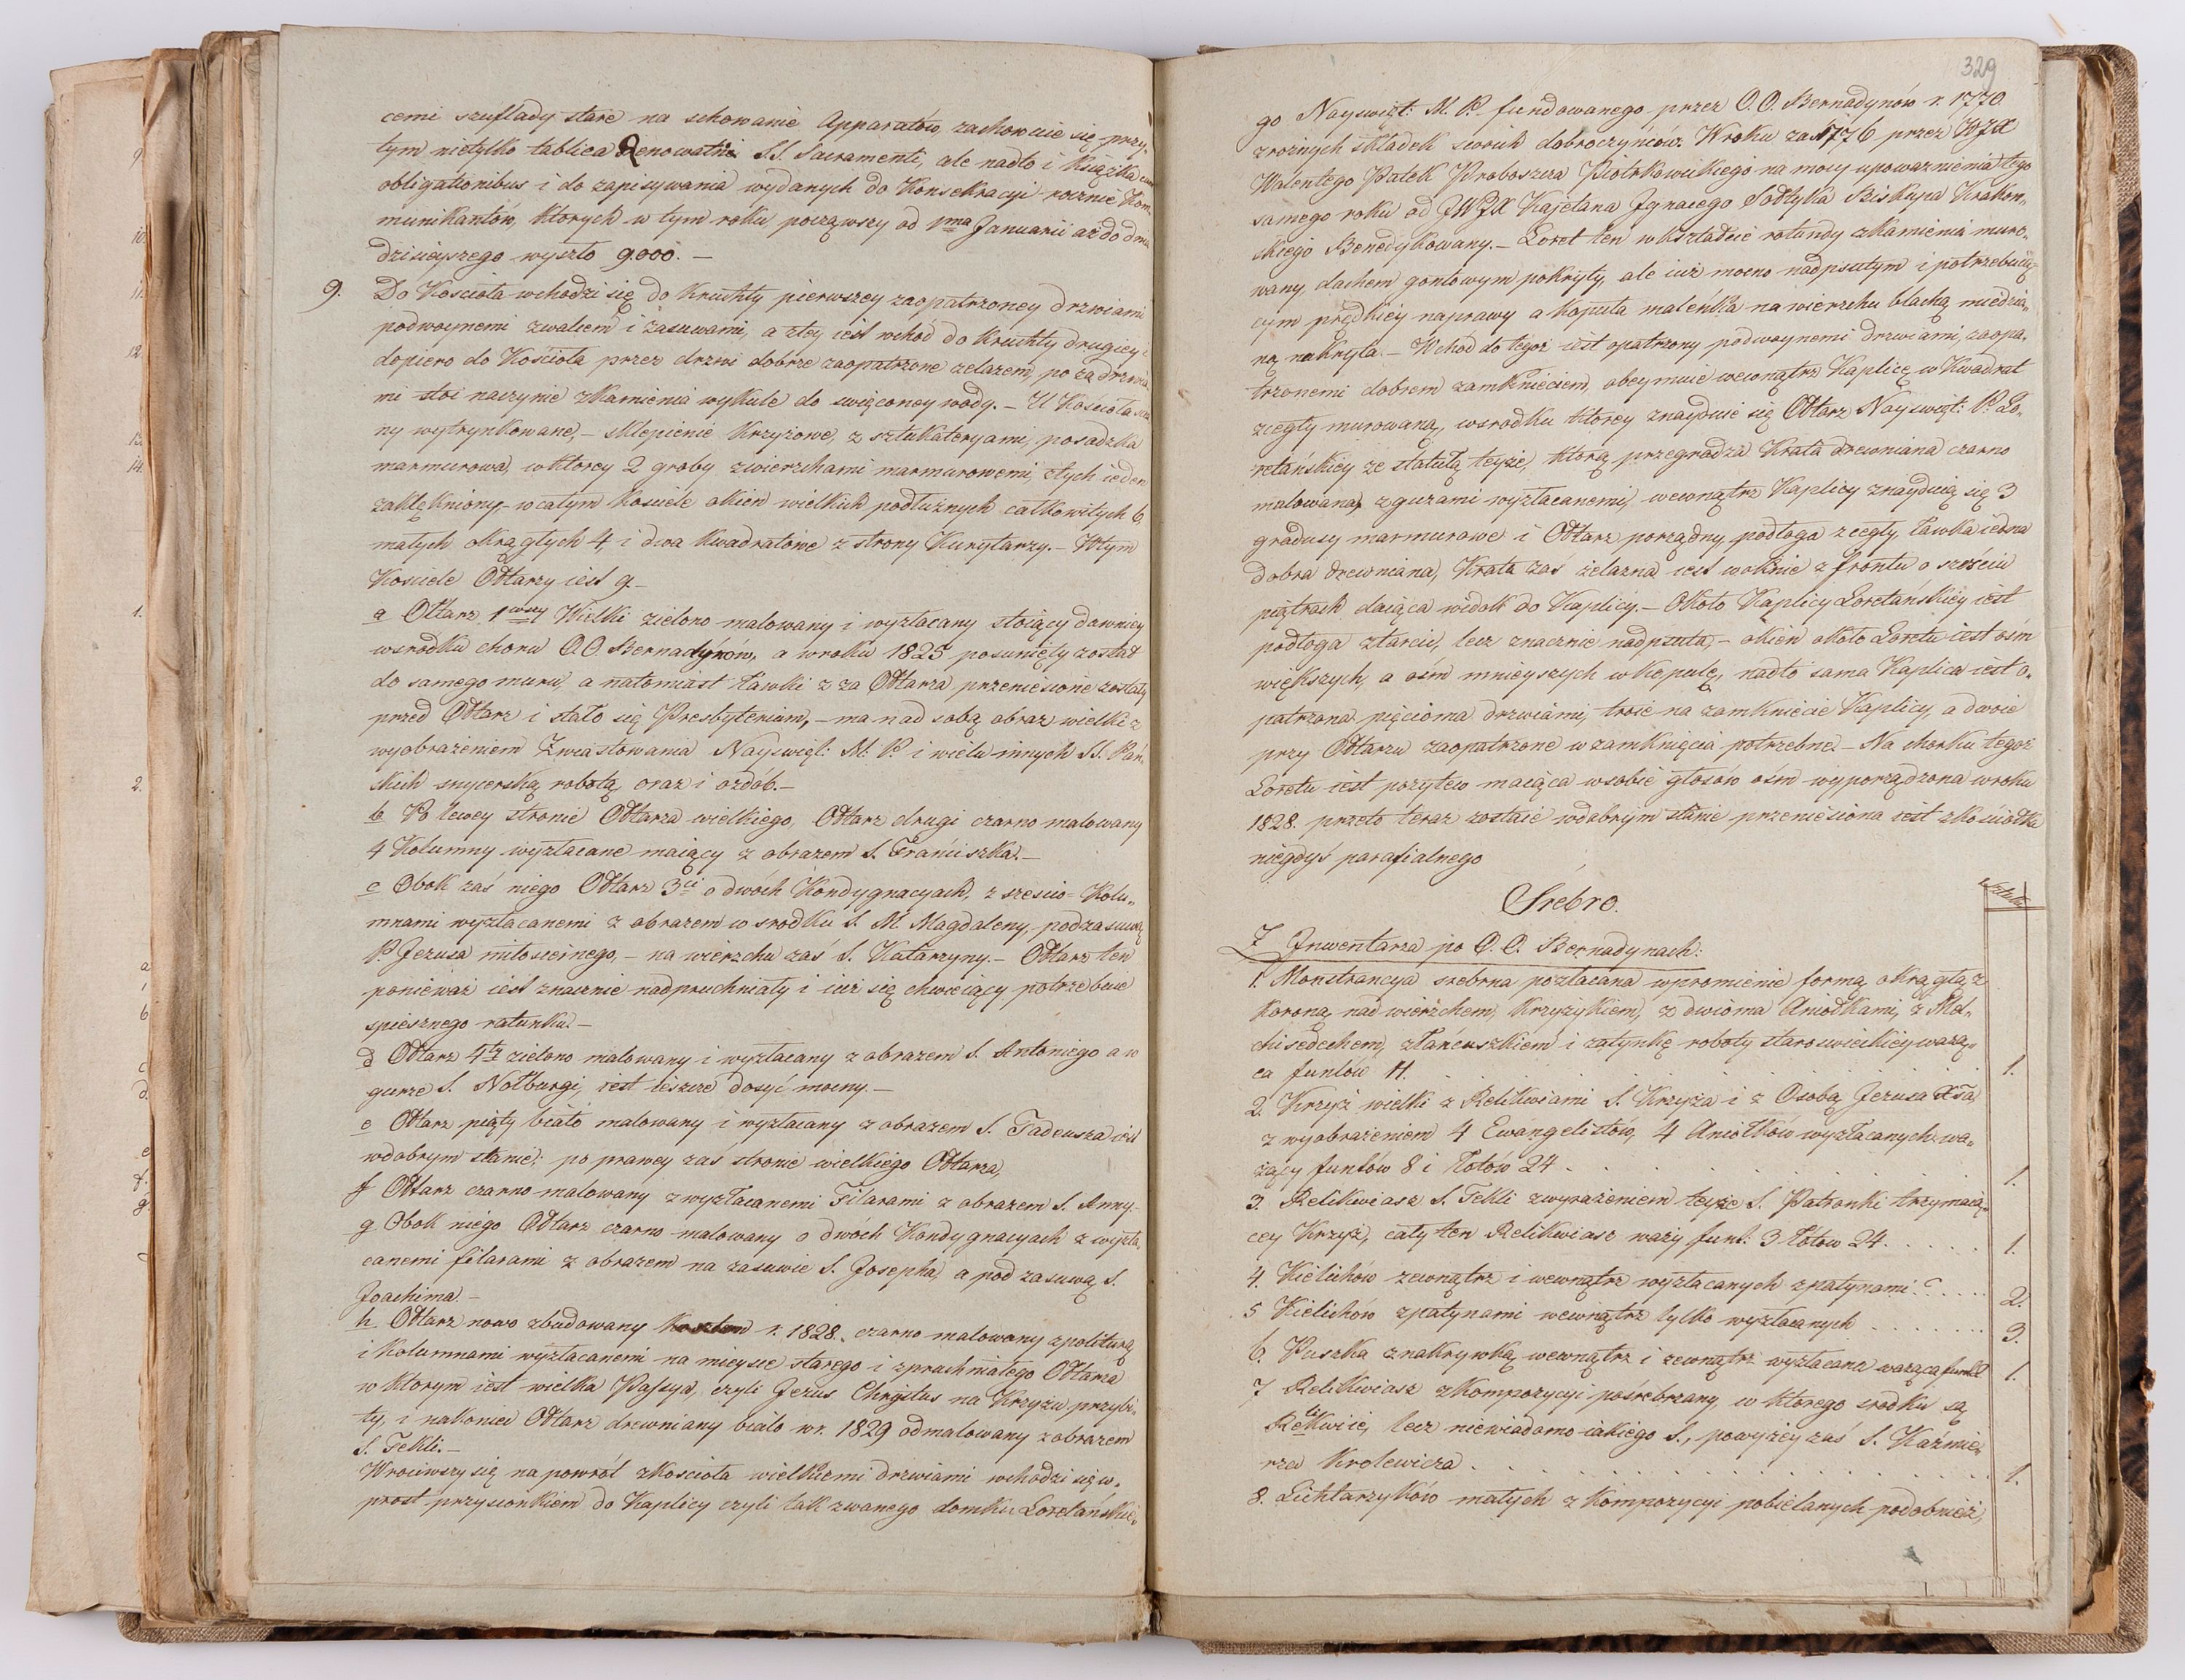 cemi szuflady stare na schowanie Apparatów, zachowuie się przy
tym nietylko tablica Renowatris S.S. Sacramenti, ale nadto i Książka cum
obligationibus i do zapisywania wydanych do Konsekracyi rocznie Kom„
munikantów, których w tym roku począwszy od 1ma Januarii aż do dnia
dzisieyszego wyszło 9.000. —
9. Do Kościoła wchodzi się do Kruchty pierwszey zaopatrzoney drzwiami
podwoynemi zwałem i zasuwami, a ztey iest wchod do Kruchty drugiey i
dopiero do Kościoła przez drzwi dobrze zaopatrzone żelazem, po za drzwia
mi stoi naczynie zkamienia wykute do swięconey wody. — U Kościoła scia
ny wytrynkowane, — sklepienie Krzyżowe, z sztukateryami, posadzka
marmurowa, wktorey 2 groby zwierzchami marmurowemi, ztych ieden
zaklękniony, — wcałym Kościele okien wielkich podłużnych całkowitych 6,
małych okrągłych 4, i dwa Kwadratowe z strony Kurytarzy. — Wtym
Kościele Ołtarzy iest 9. —
a Ołtarz 1wszy Wielki zielono malowany i wyzłacany stoiący dawniey
wśrodku choru O.O. Bernadynów, a wroku 1825 posunięty został
do samego muru, a natomiast Ławki z za Ołtarza przeniesione zostały
przed Ołtarz i stało się Presbyterium, — ma nad sobą obraz wielki z
wyobrażeniem Zwiastowania Nayswięt: M. P. i wielu innych SS. Pań„
skich snycerską robotą, oraz i ozdób. —
b Po lewey stronie Ołtarza wielkiego, Ołtarz drugi czarno malowany
4 Kolumny wyzłacane maiący z obrazem S. Franciszka. —
c Obok zaś niego Ołtarz 3ci o dwóch Kondygnacyach, z sześcio= Kolu„
mnami wyzłacanemi z obrazem w srodku S. M. Magdaleny, — podzasuwą
P. Jezusa miłosiernego, — na wierzchu zaś S. Katarzyny. — Ołtarz ten
ponieważ iest znacznie nadpruchniały i iuż się chwieiący potrzebuie
spiesznego ratunku. —
d Ołtarz 4ty zielono malowany i wyzłacany z obrazem S. Antoniego a w
gurze S. Notburgi, iest ieszcze dosyć mocny. —
e Ołtarz piąty biało malowany i wyzłacany z obrazem S. Tadeusza iest
wdobrym stanie; po prawey zas stronie wielkiego Ołtarza,
f Ołtarz czarno malowany zwyzłacanemi Filarami z obrazem S. Anny. —
g Obok niego Ołtarz czarno malowany o dwóch Kondygnacyach z wyzła„
canemi filarami z obrazem na zasuwie S. Josepha, a pod zasuwą S.
Joachima. —
h Ołtarz nowo zbudowany r. 1828. czarno malowany zpoliturą
i Kolumnami wyzłacanemi na mieysce starego i zpruchniałego Ołtarza
w ktorym iest wielka Passya, czyli Jezus Chrystus na Krzyżu przybi„
ty, i nakoniec Ołtarz drewniany biało w r. 1829 odmalowany zobrazem
S. Tekli. —
Wrociwszy się napowrót zKościoła wielkiemi drzwiami wchodzi się w„
prost przysionkiem do Kaplicy czyli tak zwanego domku Loretańskie„
329
go Nayswięt: M. P. fundowanego przez O.O. Bernadynów r. 1770.
zrożnych składek swoich dobroczyńców. Wroku zaś 1776 przez WJX
Walentego Patek Proboszcza Piotrkowickiego na mocy upoważnienia tego
samego roku od JWJX Kajetana Jgnacego Sołtyka Biskupa Krakow„
skiego Benedykowany. — Loret ten wkształcie rotundy zkamienia muro„
wany, dachem gontowym pokryty, ale iuż mocno nadpsutym i potrzebuią
cym prędkiey naprawy a Kopuła maleńka na wierzchu blachą miedzia„
ną nakryta. — Wchod do tegoż iest opatrzony podwoynemi drzwiami, zaopa„
trzonemi dobrem zamknięciem, obeymuie wewnątrz Kaplicę w Kwadrat
zcegły murowaną, wsrodku ktorey znayduie się Ołtarz Nayswięt: P. Lo„
retańskiey ze statuą teyże, ktorą przegradza Krata drewniana czarno
malowana, zguzami wyzłacanemi, wewnątrz Kaplicy znayduią się 3
gradusy marmurowe i Ołtarz porządny, podłoga zcegły, Ławka iedna
dobra drewniana, Krata zas żelazna iest woknie z frontu o sześciu
piętrach daiąca widok do Kaplicy. — Około Kaplicy Loretańskiey iest
podłoga ztarcic, lecz znacznie nadpsuta, — okien około Loretu iest ośm
większych, a ośm mnieyszych w Kopule, nadto sama Kaplica iest o„
patrzona pięcioma drzwiami, troie na zamknięcie Kaplicy, a dwoie
przy Ołtarzu zaopatrzone w zamknięcia potrzebne. — Na chorku tegoż
Loretu iest pozytew maiąca wsobie głosów ośm wyporządzona wroku
1828. przeto teraz zostaie wdobrym stanie przeniesiona iest zkościołka
niegdyś parafialnego
Srebro.
Sztuka
Z Jnwentarza po O.O. Bernadynach:
1. Monstrancya srebrna pozłacana wpromienie formą okrągłą z
Koroną nad wierzchem, Krzyżykiem, z dwioma Aniołkami, z Mel„
chisedechem, złańcuszkiem i zatynkę roboty staroswieckiey ważą„
ca funtów 11. . . . 1.
2. Krzyż wielki z Relikwiami S. Krzyża i z Osobą Jezusa Xsa,
z wyobrażeniem 4 Ewangelistow, 4 Aniołków wyzłacanych wa„
żący funtów 8 i Łotów 24 . . . 1.
3. Relikwiasz S. Tekli zwyrażeniem teyże S. Patronki trzymaią„
cey Krzyż, cały ten Relikwiasz waży funt. 3 Łotow 24. . . . 1.
4. Kielichów zewnątrz i wewnątrz wyzłacanych zpatynami . . . 2.
5 Kielichów zpatynami wewnątrz tylko wyzłacanych . . . 3.
6. Puszka znakrywką wewnątrz i zewnątrz wyzłacana ważąca funt 1.
7 Relikwiasz zKompozycyi pośrebrzany, w ktorego srodku są
Relikwie, lecz niewiadomo iakiego S., powyżey zaś S. Kaźmie„
rza Krolewicza . . . 1.
8. Lichtarzyków małych z Kompozycyi pobielanych podobnież,